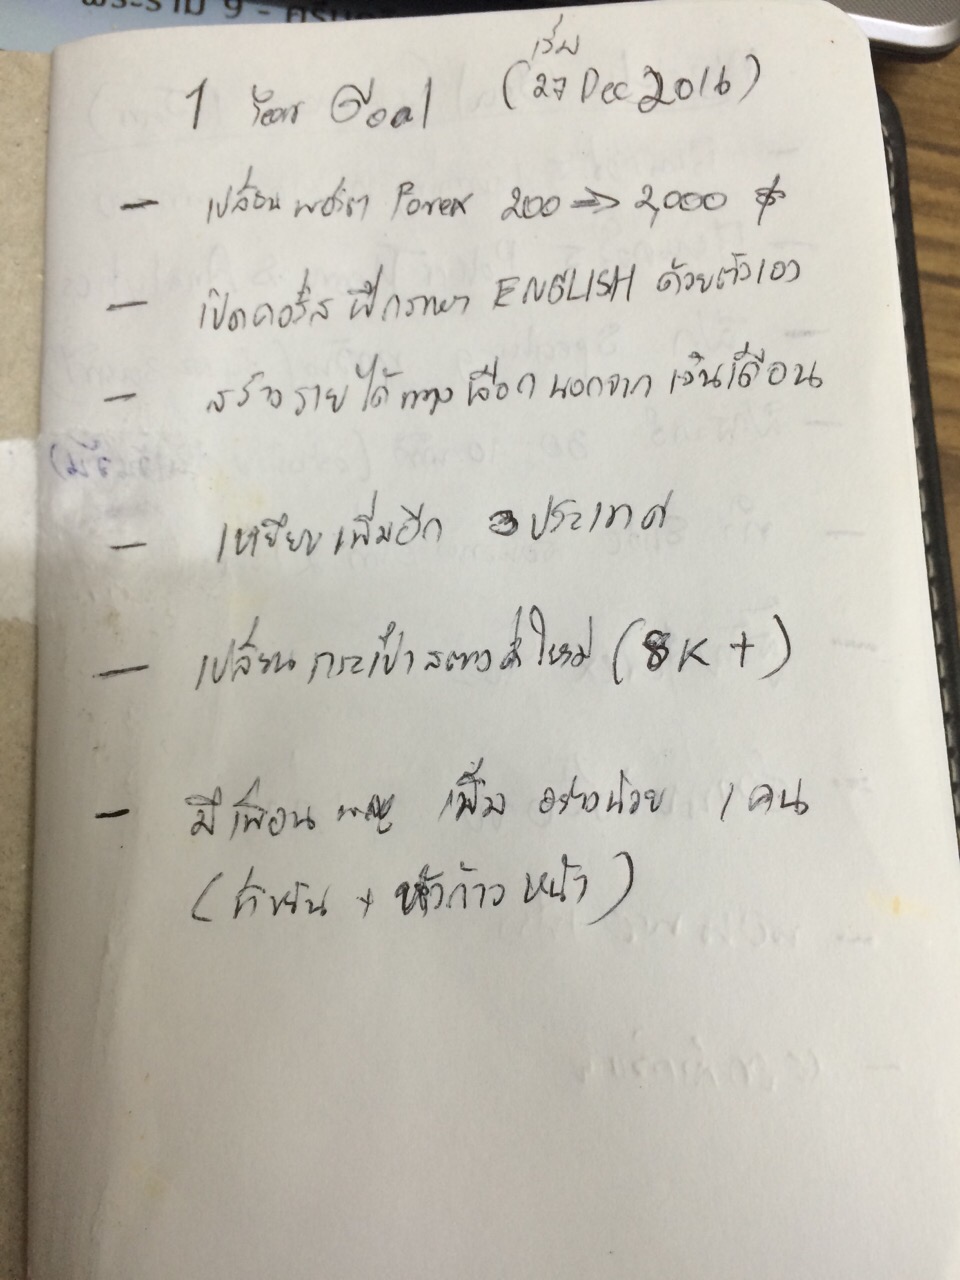 พระราม 9 -
เริ่ม
1 Year Goal (27 Dec 2016)
- เปลี่ยน Forex 200 => 2,000 $
- เปิดคอร์ส ฝึกภาษา ENGLISH ด้วยตัวเอง
- สร้างรายได้ทางเลือกนอกจาก เงินเดือน
- เหยียบเพิ่มอีก 3 ประเทศ
- เปลี่ยน กระเป๋าสตางค์ใหม่ (8K+)
- มีเพื่อน เพิ่ม อย่างน้อย 1 คน
( + หัวก้าวหน้า)